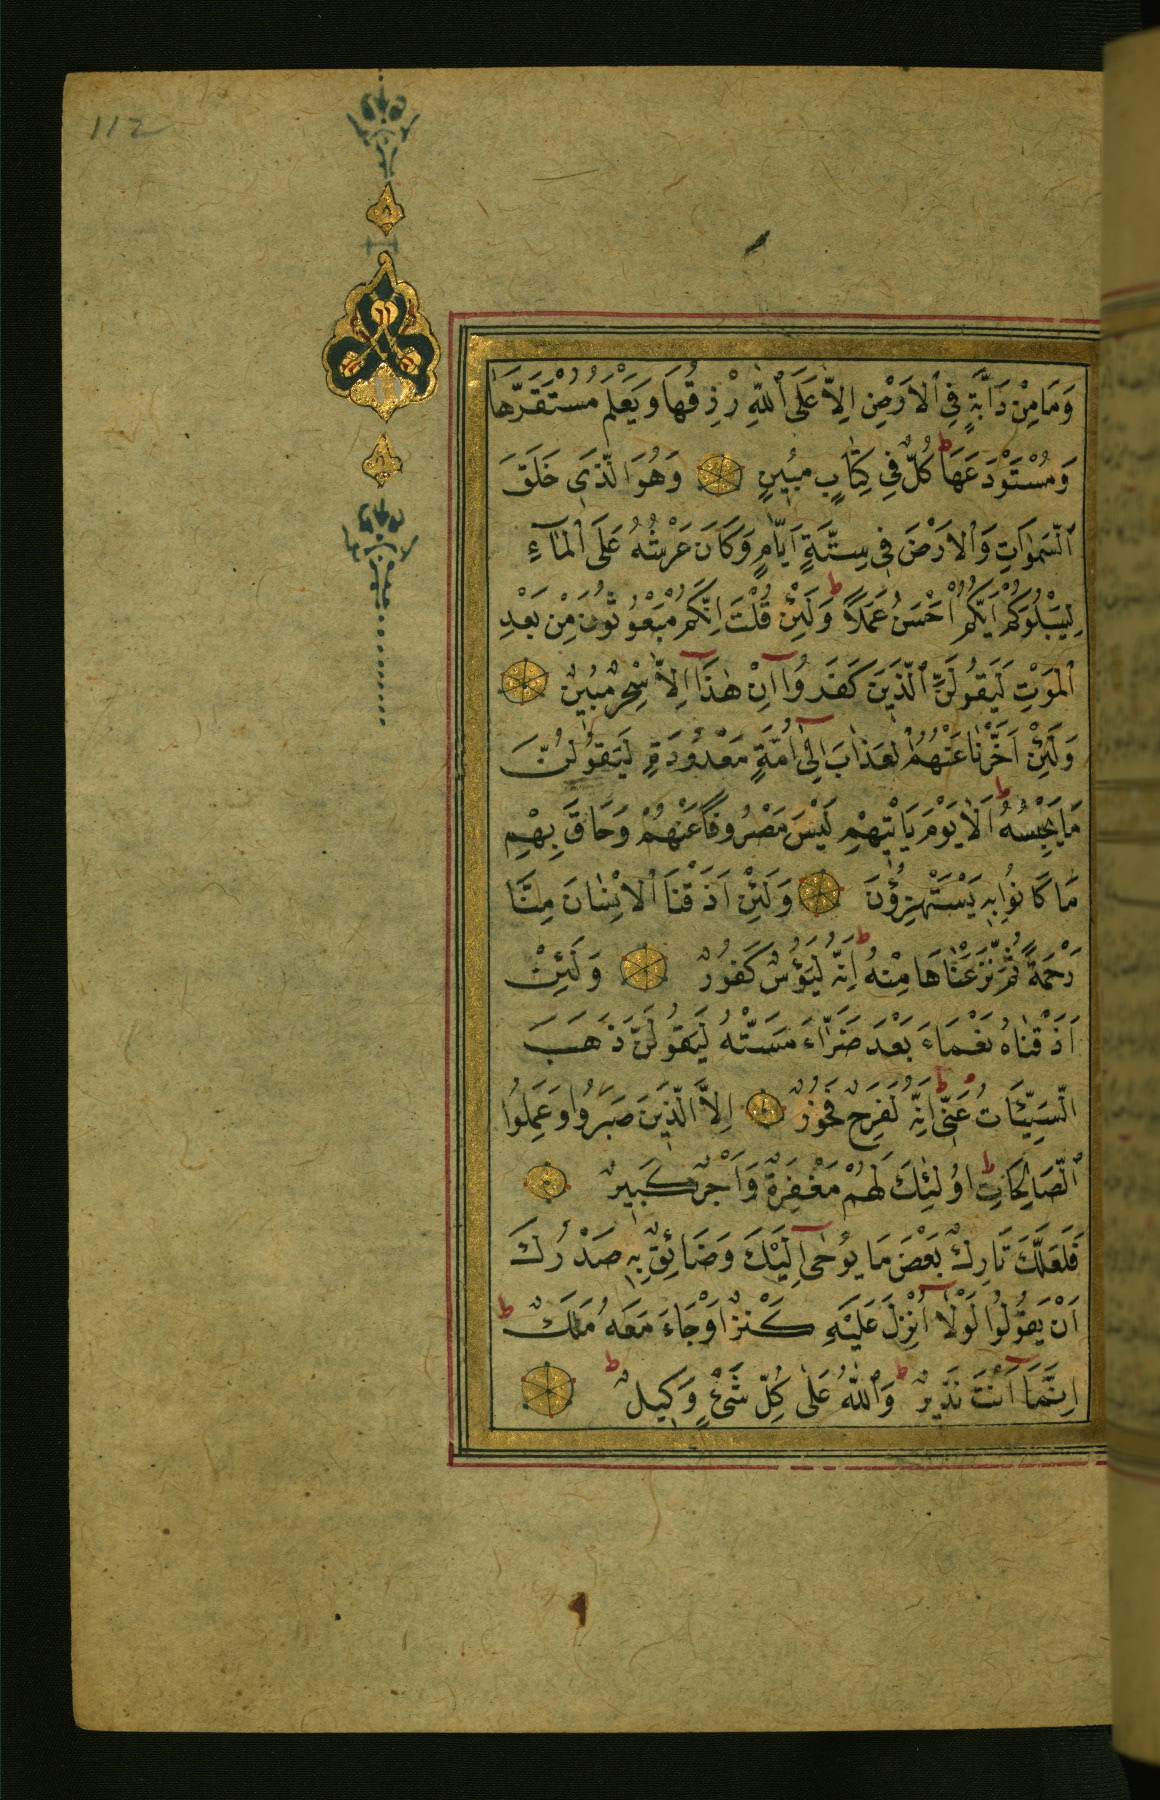 112
وَمَا مِنْ دَآبَّةٍ فِي ٱلْاَرْضِ اِلَّا عَلَى ٱللّٰهِ رِزْقُهَا وَيَعْلَمُ مُسْتَقَرَّهَا
وَمُسْتَوْدَعَهَا ط كُلٌّ فِي كِتَابٍ مُبِينٍ وَهُوَ الَّذِي خَلَقَ
ٱلسَّمٰوَاتِ وَٱلْاَرْضَ فِي سِتَّةِ اَيَّامٍ وَكَانَ عَرْشُهُ عَلَى ٱلْمَآءِ
لِيَبْلُوَكُمْ اَيُّكُمْ اَحْسَنُ عَمَلاً ط وَلَئِنْ قُلْتَ اِنَّكُمْ مَبْعُوثُونَ مِنْ بَعْدِ
ٱلْمَوْتِ لَيَقُولَنَّ ٱلَّذِينَ كَفَرُوا اِنْ هٰذَا اِلَّا سِحْرٌ مُبِينٌ
وَلَئِنْ اَخَّرْنَا عَنْهُمُ ٱلْعَذَابَ اِلٰٓى اُمَّةٍ مَعْدُودَةٍ لَيَقُولُنَّ
مَا يَحْبِسُهُ ط اَلَا يَوْمَ يَاْتِيهِمْ لَيْسَ مَصْرُوفًا عَنْهُمْ وَحَاقَ بِهِمْ
مَا كَانُوا بِهِ يَسْتَهْزِؤُنَ وَلَئِنْ اَذَقْنَا ٱلْاِنْسَانَ مِنَّا
رَحْمَةً ثُمَّ نَزَعْنَاهَا مِنْهُ ط اِنَّهُ لَيَؤُسٌ كَفُورٌ وَلَئِنْ
اَذَقْنَاهُ نَعْمَاءَ بَعْدَ ضَرَّاءَ مَسَّتْهُ لَيَقُولَنَّ ذَهَبَ
ٱلسَّيِّئَاتُ عَنِّي ط اِنَّهُ لَفَرِحٌ فَخُورٌ اِلَّا الَّذِينَ صَبَرُوا وَعَمِلُوا
ٱلصَّالِحَاتِ ط اُولٰئِكَ لَهُمْ مَغْفِرَةٌ وَاَجْرٌ كَبِيرٌ
فَلَعَلَّكَ تَارِكٌ بَعْضَ مَا يُوحٰٓى اِلَيْكَ وَضَائِقٌ بِهِ صَدْرُكَ
اَنْ يَقُولُوا لَوْلَآ اُنْزِلَ عَلَيْهِ كَنْزٌ اَوْ جَاءَ مَعَهُ مَلَكٌ ط
اِنَّمَآ اَنْتَ نَذِيرٌ ط وَٱللّٰهُ عَلٰى كُلِّ شَىْءٍ وَكِيلٌ ط